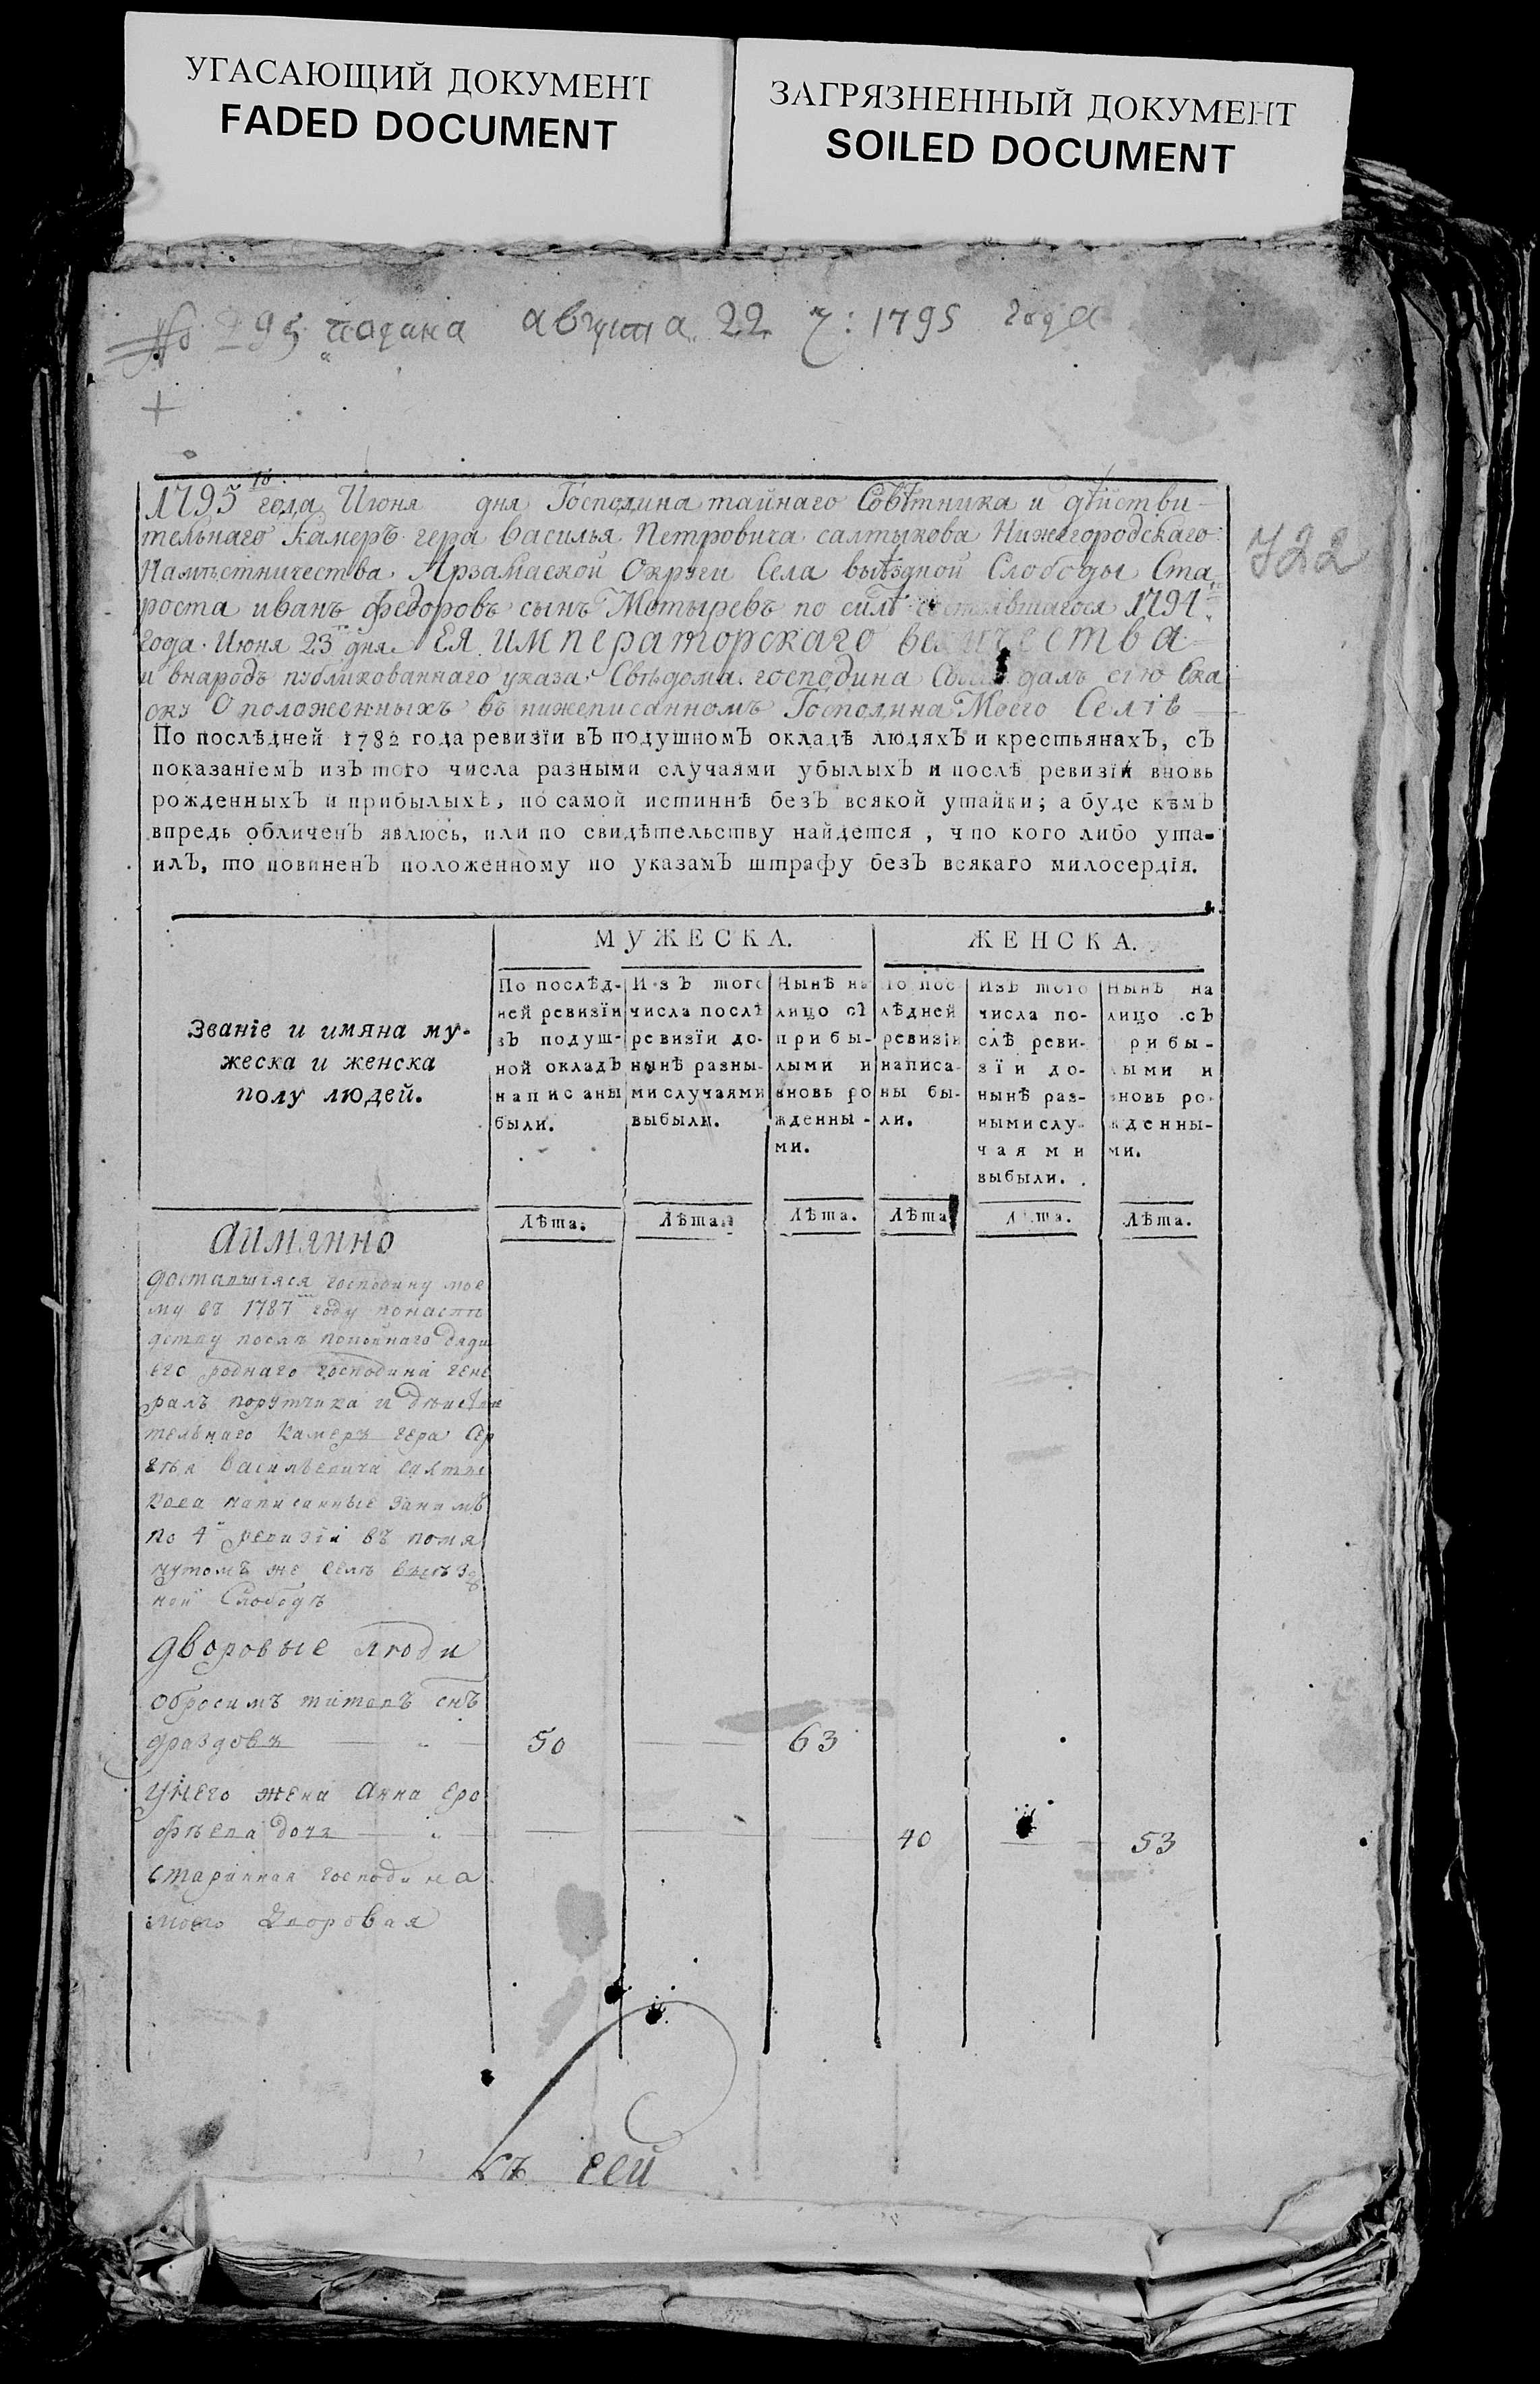 УГАСАЮЩИЙ ДОКУМЕНТ
FADED DOCUMENT
ЗАГРЯЗНЕННЫЙ ДОКУМЕНТ
SOILED DOCUMENT
№ 295 подана августа 22 ч: 1795 года
722
1795го года Июня дня Господина тайнаго Совѣтника и дѣистви-
тельнаго Камеръ гера Василья Петровича салтыкова Нижегородскаго
Намѣстничества Арзамаской Округи Села выѣздной Слободы Ста
роста иванъ федоровъ сынъ Мотыревъ по силѣ состоявшагося 1794
года Июня 23 дня ЕЯ императорскаго величества
и внародъ публикованнаго указа Свѣдома господина далъ сїю Ска
ску О положенныхъ въ нижеписанномъ Господина Моего Селѣ
По послѣдней 1782 года ревизїи въ подушномъ окладѣ людяхъ и крестьянахъ, съ
показанїемъ изъ того числа разными случаями убылыхъ и послѣ ревизїи вновь
рожденныхъ и прибылыхъ, по самой истиннѣ безъ всякой утайки; а буде кѣмъ
впредь обличенъ явлюсь, или по свидѣтельству найдется, что кого либо ута-
илъ, то повиненъ положенному по указамъ штрафу безъ всякаго милосердїя.
МУЖЕСКА. ЖЕНСКА.
Званїе и имяна му-
жеска и женска
полу людей.
По послѣд-
ней ревизїи
въ подуш-
ной окладъ
написаны
были.
Изъ того
числа послѣ
ревизїи до-
нынѣ разны-
ми случаями
выбыли.
Нынѣ на
лицо съ
прибы-
лыми и
вновь ро
жденны-
ми.
По пос
лѣдней
ревизїи
написа-
ны бы-
ли.
Изъ того
числа по-
слѣ реви-
зїи до-
нынѣ раз-
ными слу-
чаями
выбыли.
Нынѣ на
лицо съ
прибы-
лыми и
вновь ро-
жденны-
ми.
Лѣта. Лѣта. Лѣта. Лѣта. Лѣта. Лѣта.
Аимянно
доставшїяся господину мое
му въ 1787 году понаслѣ
дству послѣ покойнаго дяди
его роднаго господина гене
ралъ порутчика и дѣистви
тельнаго Камеръ гера Сер
гѣя Васильевича Салты
кова написанные занимъ
по 4й ревизїи въ помя
нутомъ же селѣ выѣзд
ной Слободѣ
дворовые люди
обросимъ титовъ снъ
драздовъ 50 63
унего жена Анна еро
фѣева дочь 40 53
старинная господина
моего дворовая
Къ сей